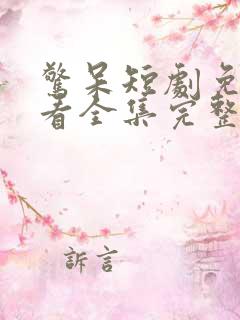 驚呆短劇免
看全集完整
訴言